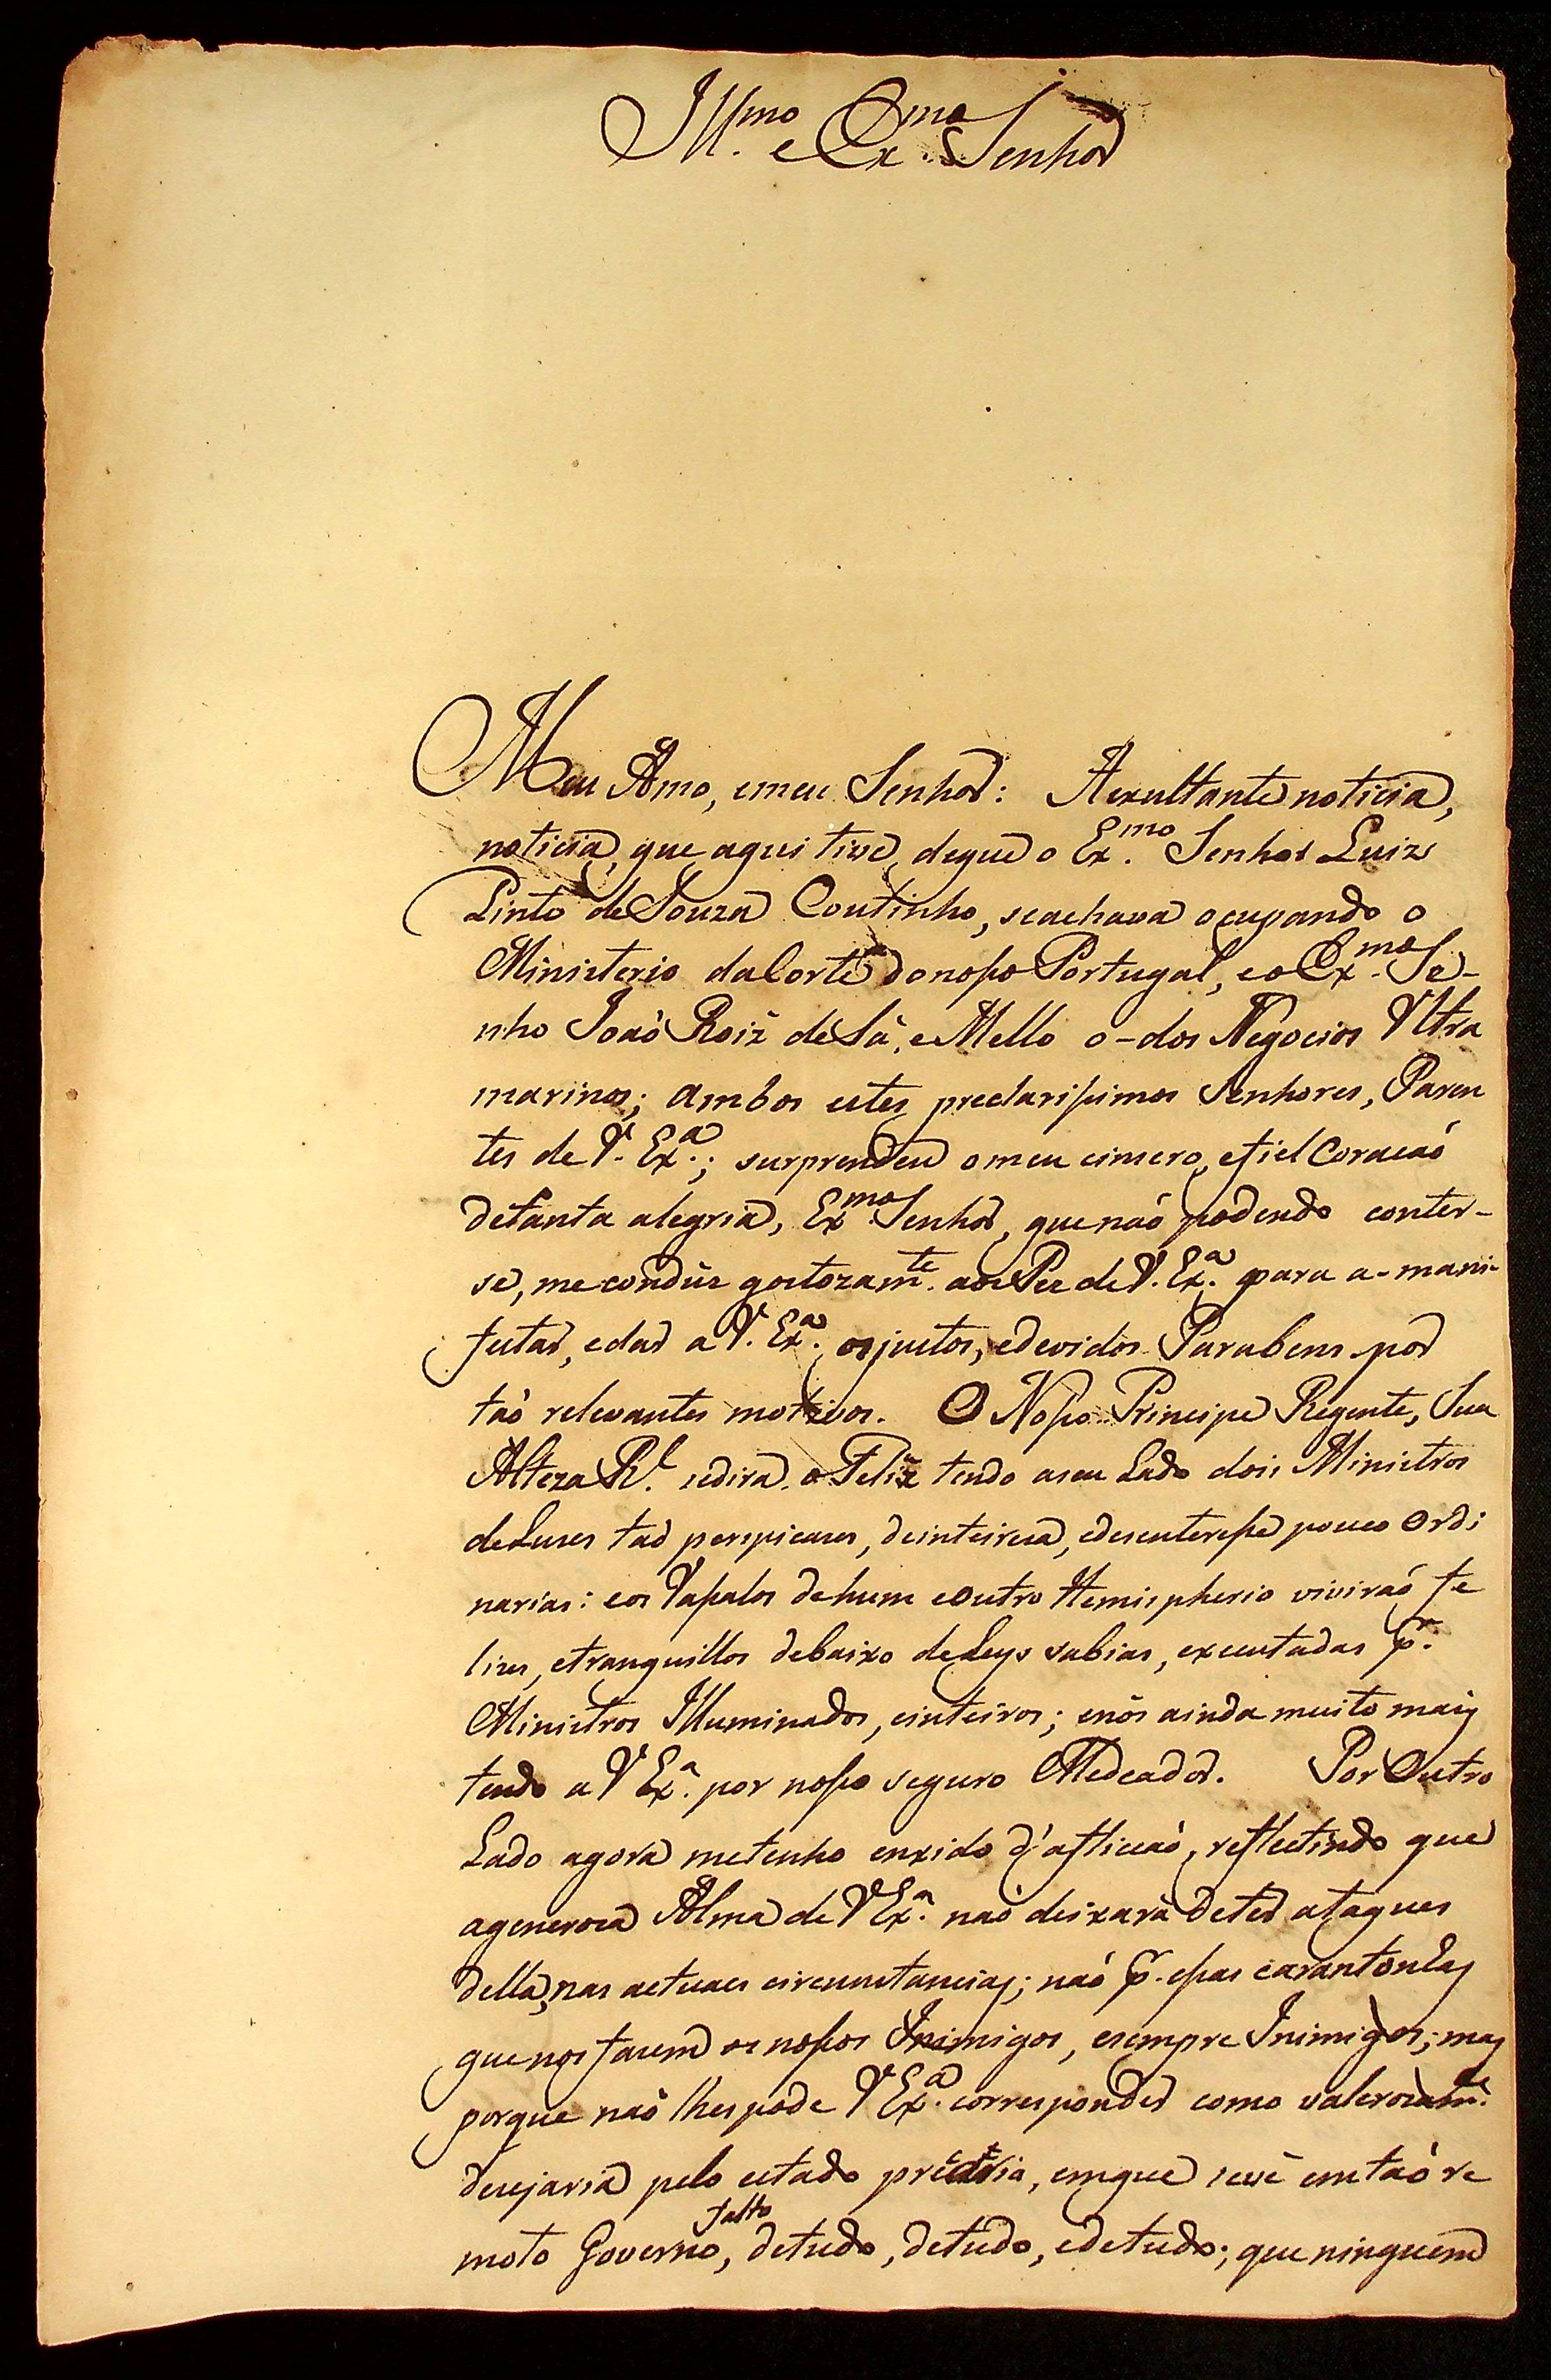 Ill.mo e Ex.mo Senhor
Meu Amo, emeu Senhor: A exultante noticia,
noticia, que aqui tive, deque o Ex.mo Senhor Luiz
Pinto de Souza Coutinho, seachava ocupando o
Ministerio da Corte donosso Portugal, eo Ex.mo Se-
nho Joaõ Roiz de Sá, e Mello o-dos Negocios Vltra
marinos; ambos estes preclarissimos Senhores, Paren
tes de V. Ex.a; surprendeu omeu cincero, efiel Coracaõ
detanta alegria, Ex.mo Senhor, que naõ podendo conter-
se, me condûz gostozam.te aos Pes de V. Ex.a para a-mani-
festar, edar a V. Ex.a os justos, edevidos Parabens por
taõ relevantes motivos. O Nosso Principe Regente, Sua
Alteza R.l sedira o Feliz tendo aseu Lado dois Ministros
deLuses taõ perspicases, deinteiresa, edesenteresse pouco Ordi
narias: eos Vassalos dehum eoutro Hemispherio viviraõ fe
lises, etranquillos debaixo deLeys sabias, executadas p.r
Ministros Illuminados, einteiros; enôs ainda muito mais
tendo a V Ex.a por nosso seguro Medeador. Por Outro
Lado agora metenho enxido d'aflicaõ, reflectindo que
agenerosa Alma de V Ex.a naõ deixarà deter ataques
della, nas actuaes circunstancias; naõ p.r essas carantonhas
que nos fasem os nossos Inimigos, esempre Inimigos; mas
porque naõ lhespode V Ex.a corresponder como valerozam.te
desejaria pelo estado em que sevê emtaõ re
moto Governo, falto detudo, detudo, edetudo; que ninguem